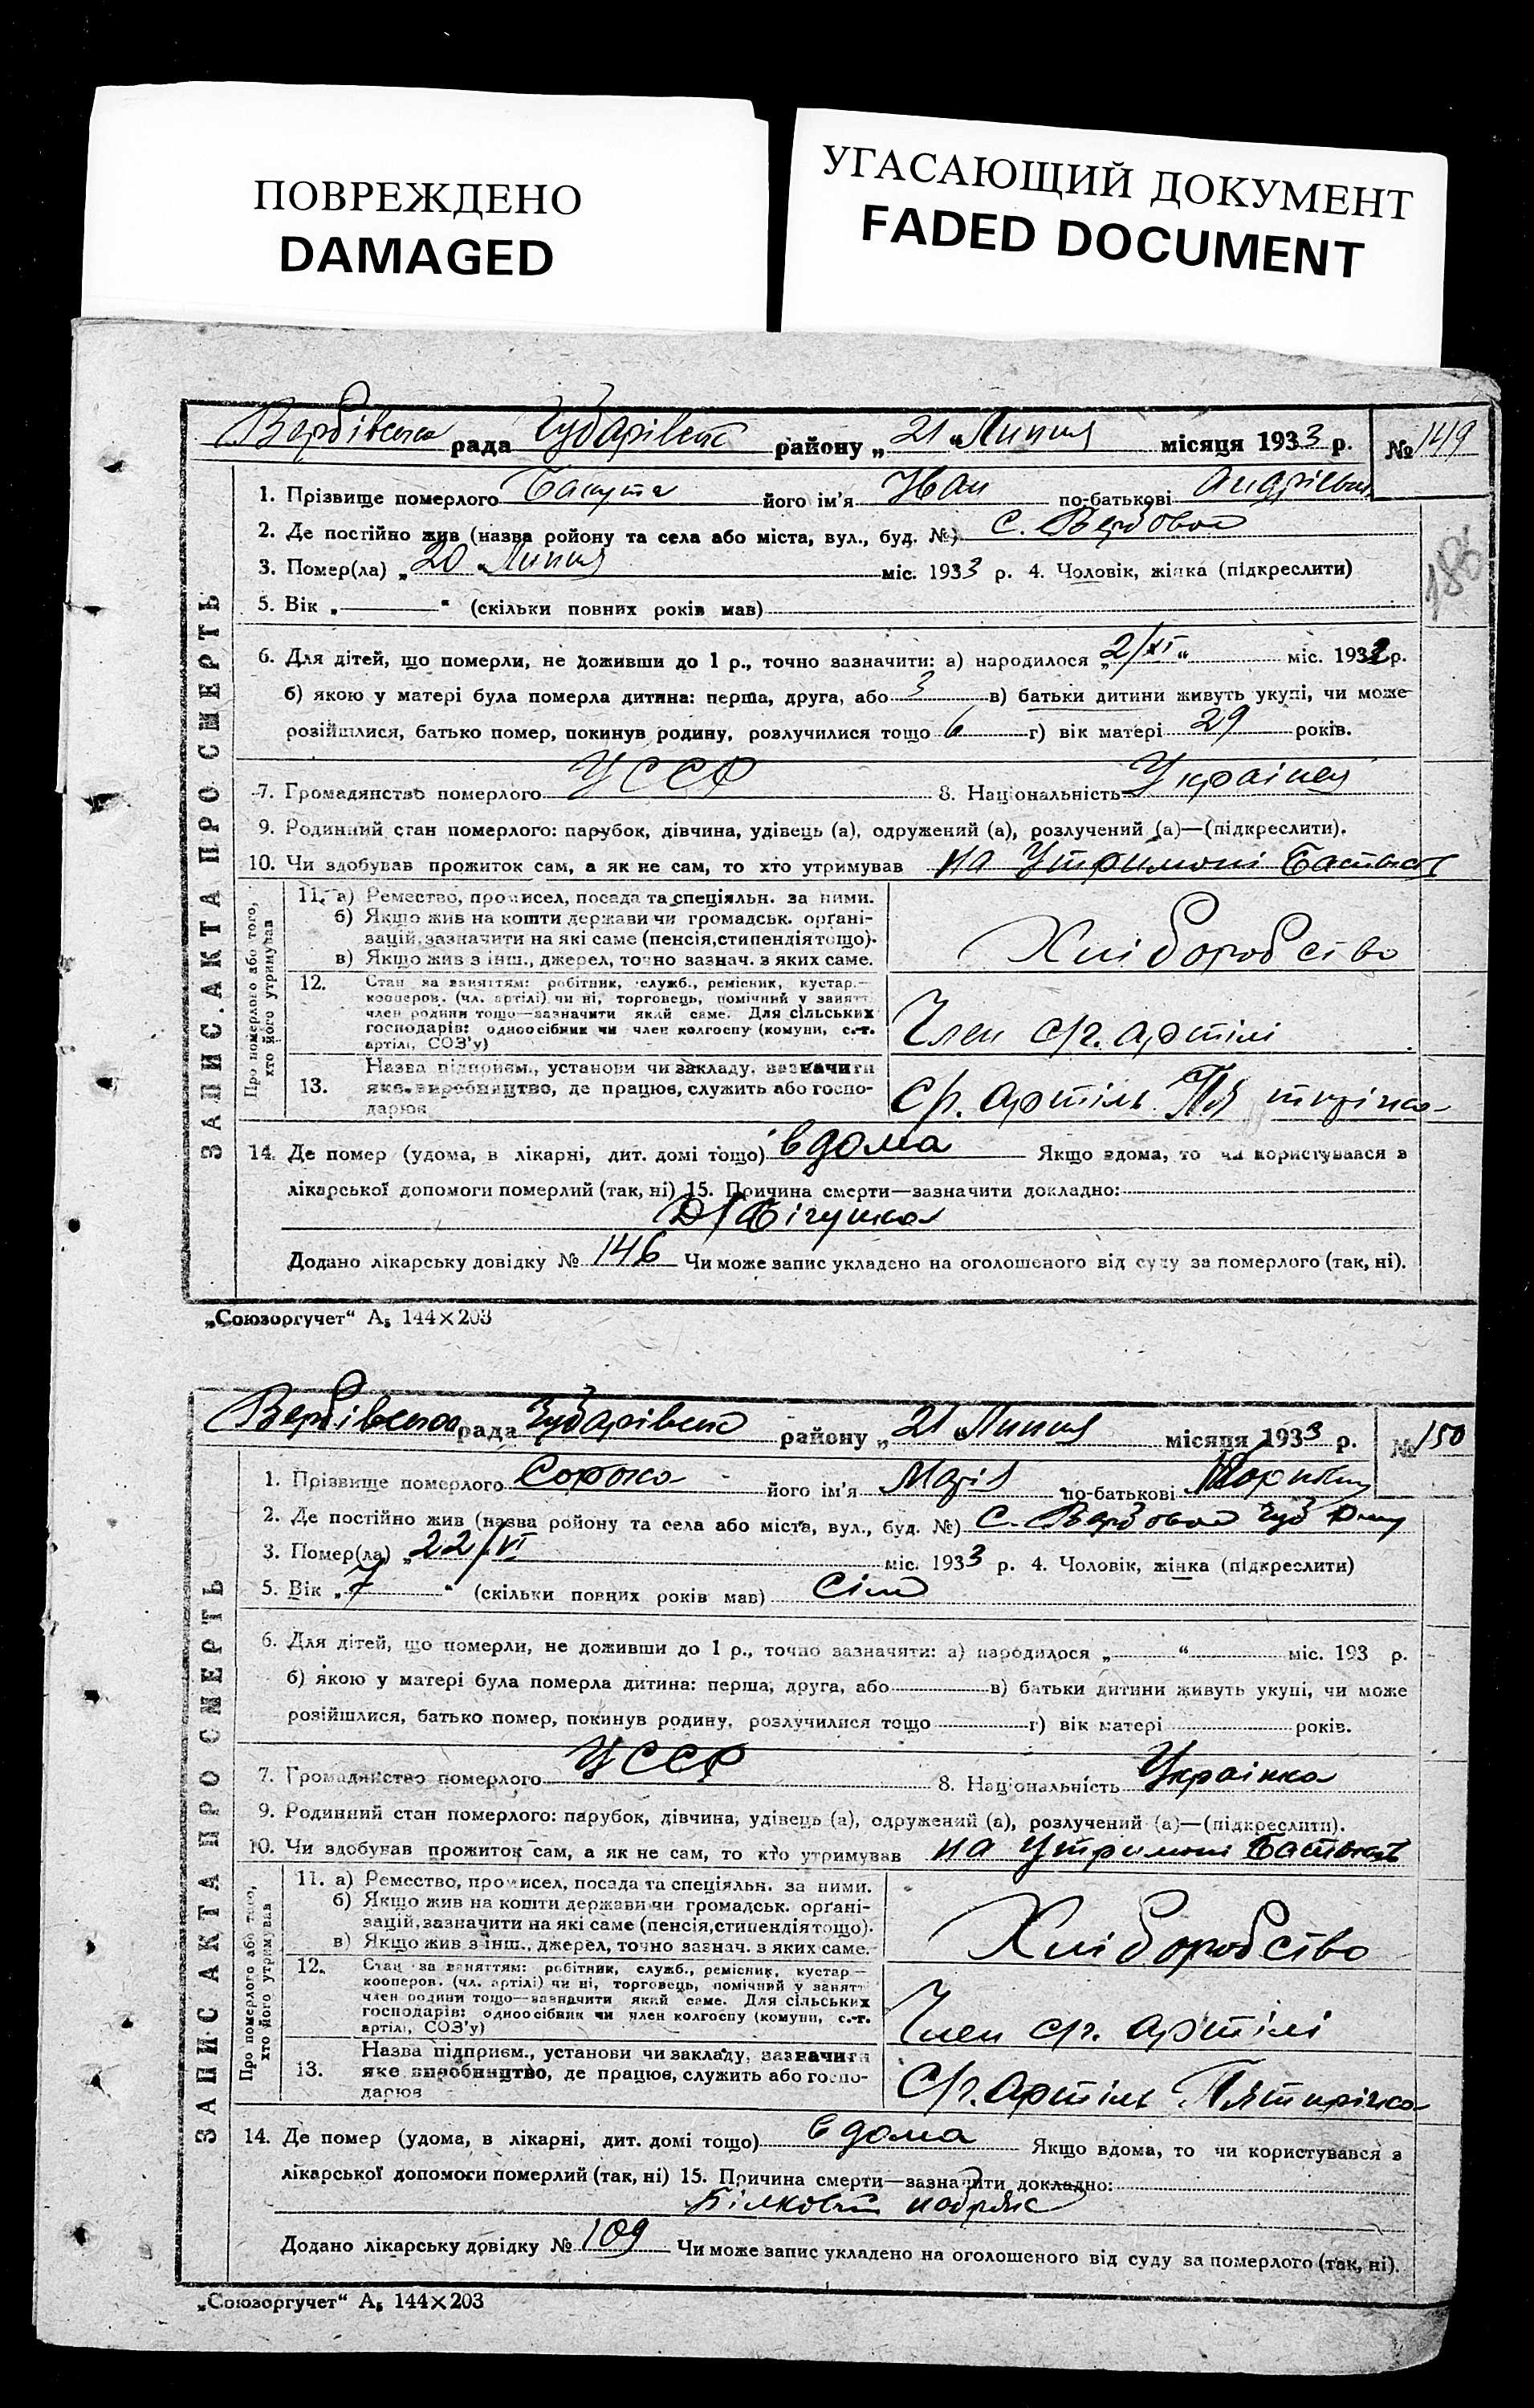 ПОВРЕЖДЕНО
DAMAGED
УГАСАЮЩИЙ ДОКУМЕНТ
FADED DOCUMENT
Вербівська рада Чубарівськ району „21“ Липня місяця 1933 р. № 149
1. Прізвище померлого його ім'я Иван по-батькові Андрієвич
2. Де постійно жив (назва ройону та села або міста, вул., буд. №) с. Вербовое
3. Помер(ла) „20“ Липня міс. 1933 р. 4. Чоловік, жінка (підкреслити)
186
5. Вік „ “ (скільки повних років мав)
6. Для дітей, що померли, не доживши до 1 р., точно зазначити: а) народилося „2/XI“ міс. 1932 р.
б) якою у матері була померла дитина: перша, друга, або 3 в) батьки дитини живуть укупі, чи може
розійшлися, батько помер, покинув родину, розлучилися тощо г) вік матері 29 років.
7. Громадянство померлого УССР 8. Національність Українец
9. Родинний стан померлого: парубок, дівчина, удівець (а), одружений (а), розлучений (а)—(підкреслити).
10. Чи здобував прожиток сам, а як не сам, то хто утримував на утримані батьков
ЗАПИС АКТА ПРО СМЕРТЬ
Про померлого або того, хто його утримував
11. а) Ремество, промисел, посада та спеціяльн. за ними.
б) Якщо жив на кошти держави чи громадськ. орґані-
зацій, зазначити на які саме (пенсія, стипендія тощо).
в) Якщо жив з інш., джерел, точно зазнач. з яких саме.
Хліборобство
12. Стан за заняттям: робітник, служб., ремісник, кустар.—
кооперов. (чл. артілі) чи ні, торговець, помічний у занятт.
член родини тощо—зазначити який саме. Для сільських
господарів: одноосібник чи член колгоспу (комуни, с.-г.
артілі, СОЗ'у)
Член с/г. артілі
13. Назва підприєм., установи чи закладу, зазначити
яке виробництво, де працює, служить або госпо-
дарює
С/г. артіль Пятирічка
14. Де помер (удома, в лікарні, дит. домі тощо) вдома Якщо вдома, то чи користувався з
лікарської допомоги померлий (так, ні) 15. Причина смерти—зазначити докладно:
Додано лікарську довідку № 146 Чи може запис укладено на оголошеного від суду за померлого (так, ні).
„Союзоргучет“ А₅ 144×203
Вербівська рада Чубарівськ району „21“ Липня місяця 1933 р. № 150
1. Прізвище померлого Сорока його ім'я Марія по-батькові
2. Де постійно жив (назва ройону та села або міста, вул., буд. №) с. Вербовое Чуб
3. Помер(ла) „22/VI міс. 1933 р. 4. Чоловік, жінка (підкреслити)
5. Вік „7“ (скільки повних років мав) Сім
6. Для дітей, що померли, не доживши до 1 р., точно зазначити: а) народилося „ “ міс. 193 р.
б) якою у матері була померла дитина: перша, друга, або в) батьки дитини живуть укупі, чи може
розійшлися, батько помер, покинув родину, розлучилися тощо г) вік матері років.
7. Громадянство померлого УССР 8. Національність Українка
9. Родинний стан померлого: парубок, дівчина, удівець (а), одружений (а), розлучений (а)—(підкреслити).
10. Чи здобував прожиток сам, а як не сам, то хто утримував на утримані батьков
ЗАПИС АКТА ПРО СМЕРТЬ
Про померлого або того, хто його утримував
11. а) Ремество, промисел, посада та спеціяльн. за ними.
б) Якщо жив на кошти держави чи громадськ. орґані-
зацій, зазначити на які саме (пенсія, стипендія тощо).
в) Якщо жив з інш., джерел, точно зазнач. з яких саме.
Хліборобство
12. Стан за заняттям: робітник, служб., ремісник, кустар—
кооперов. (чл. артілі) чи ні, торговець, помічний у занятт.
член родини тощо—зазначити який саме. Для сільських
господарів: одноосібник чи член колгоспу (комуни, с.-г.
артілі, СОЗ'у)
Член с/г. артілі
13. Назва підприєм., установи чи закладу, зазначити
яке виробництво, де працює, служить або госпо-
дарює
С/г. артіль Пятирічка
14. Де помер (удома, в лікарні, дит. домі тощо) вдома Якщо вдома, то чи користувався з
лікарської допомоги померлий (так, ні) 15. Причина смерти—зазначити докладно:
Білковий набряк
Додано лікарську довідку № 109 Чи може запис укладено на оголошеного від суду за померлого (так, ні).
„Союзоргучет“ А₅ 144×203